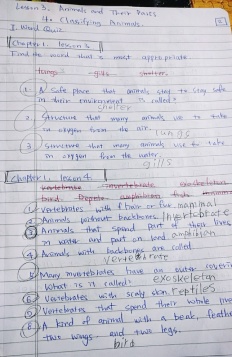 Lesson 3. Animals and Their Parts
4. Classifying Animals.
I. Word Quiz
Chapter 1. lesson 3
Find the word that is most appropriate
lungs gills shelter
1. A safe place that animals stay to stay safe
in their environment is called?
shelter
2. Structure that many animals use to take
in oxygen from the air.
lungs
3. Structure that many animals use to take
in oxygen from the water.
gills
Chapter 1. lesson 4.
vertebrate invertebrate exoskeleton
bird Reptile amphibian
1. Vertebrates with f hair or fur. mammal
2. Animals without backbones. Invertebrate
3. Animals that spend part of their lives
in water and part on land amphibian
4. Animals with backbones are called
vertebrate
5. Many invertebrates have an outer covering
What is it called? exoskeleton
6. Vertebrates with scaly skin reptiles
7. Vertebrates that spend their whole lives
8. A kind of animal with a beak, feathe
two wings and two legs.
bird